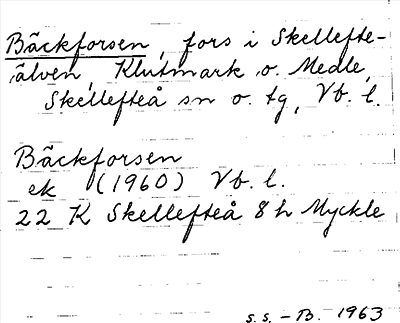 Bäckforsen, fors i Skellefte-
älven, Klutmark o. Medle,
Skellefteå sn o. tg, Vb. l.
Bäckforsen
ek (1960) Vb. l.
22 K Skellefteå 8 h Myckle
S.S. - B. 1963